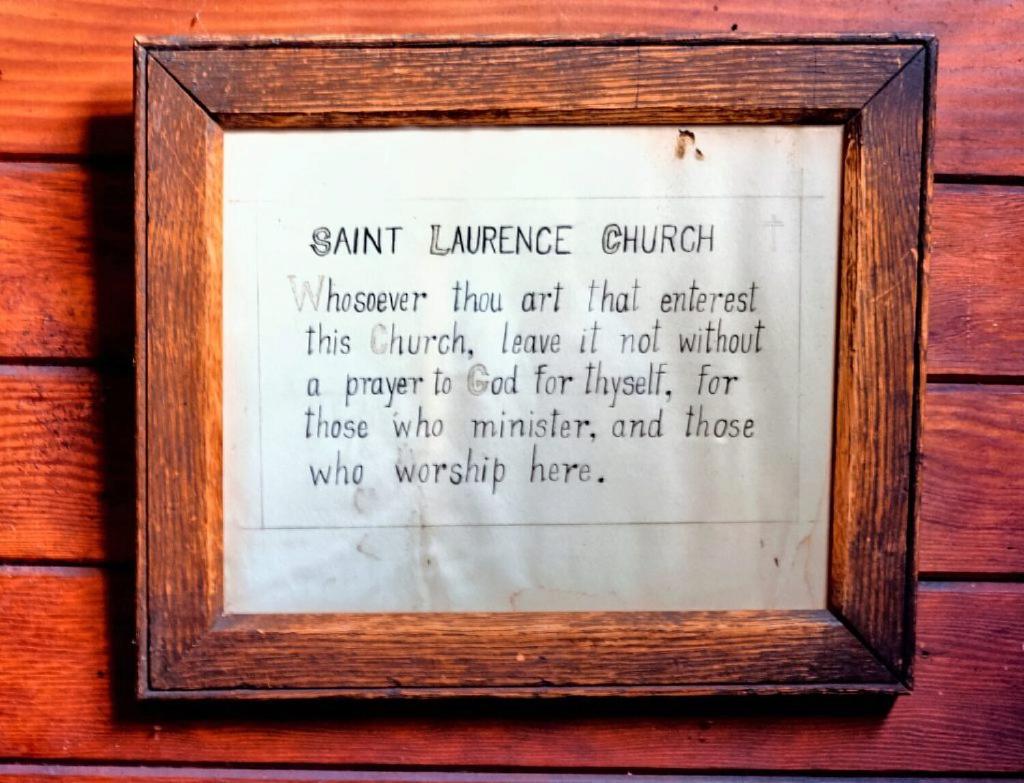 SAINT LAURENCE CHURCH
Whosoever thou art that enterest
this Church, leave it not without
a prayer to God for thyself, for
those who minister, and those
who worship here.